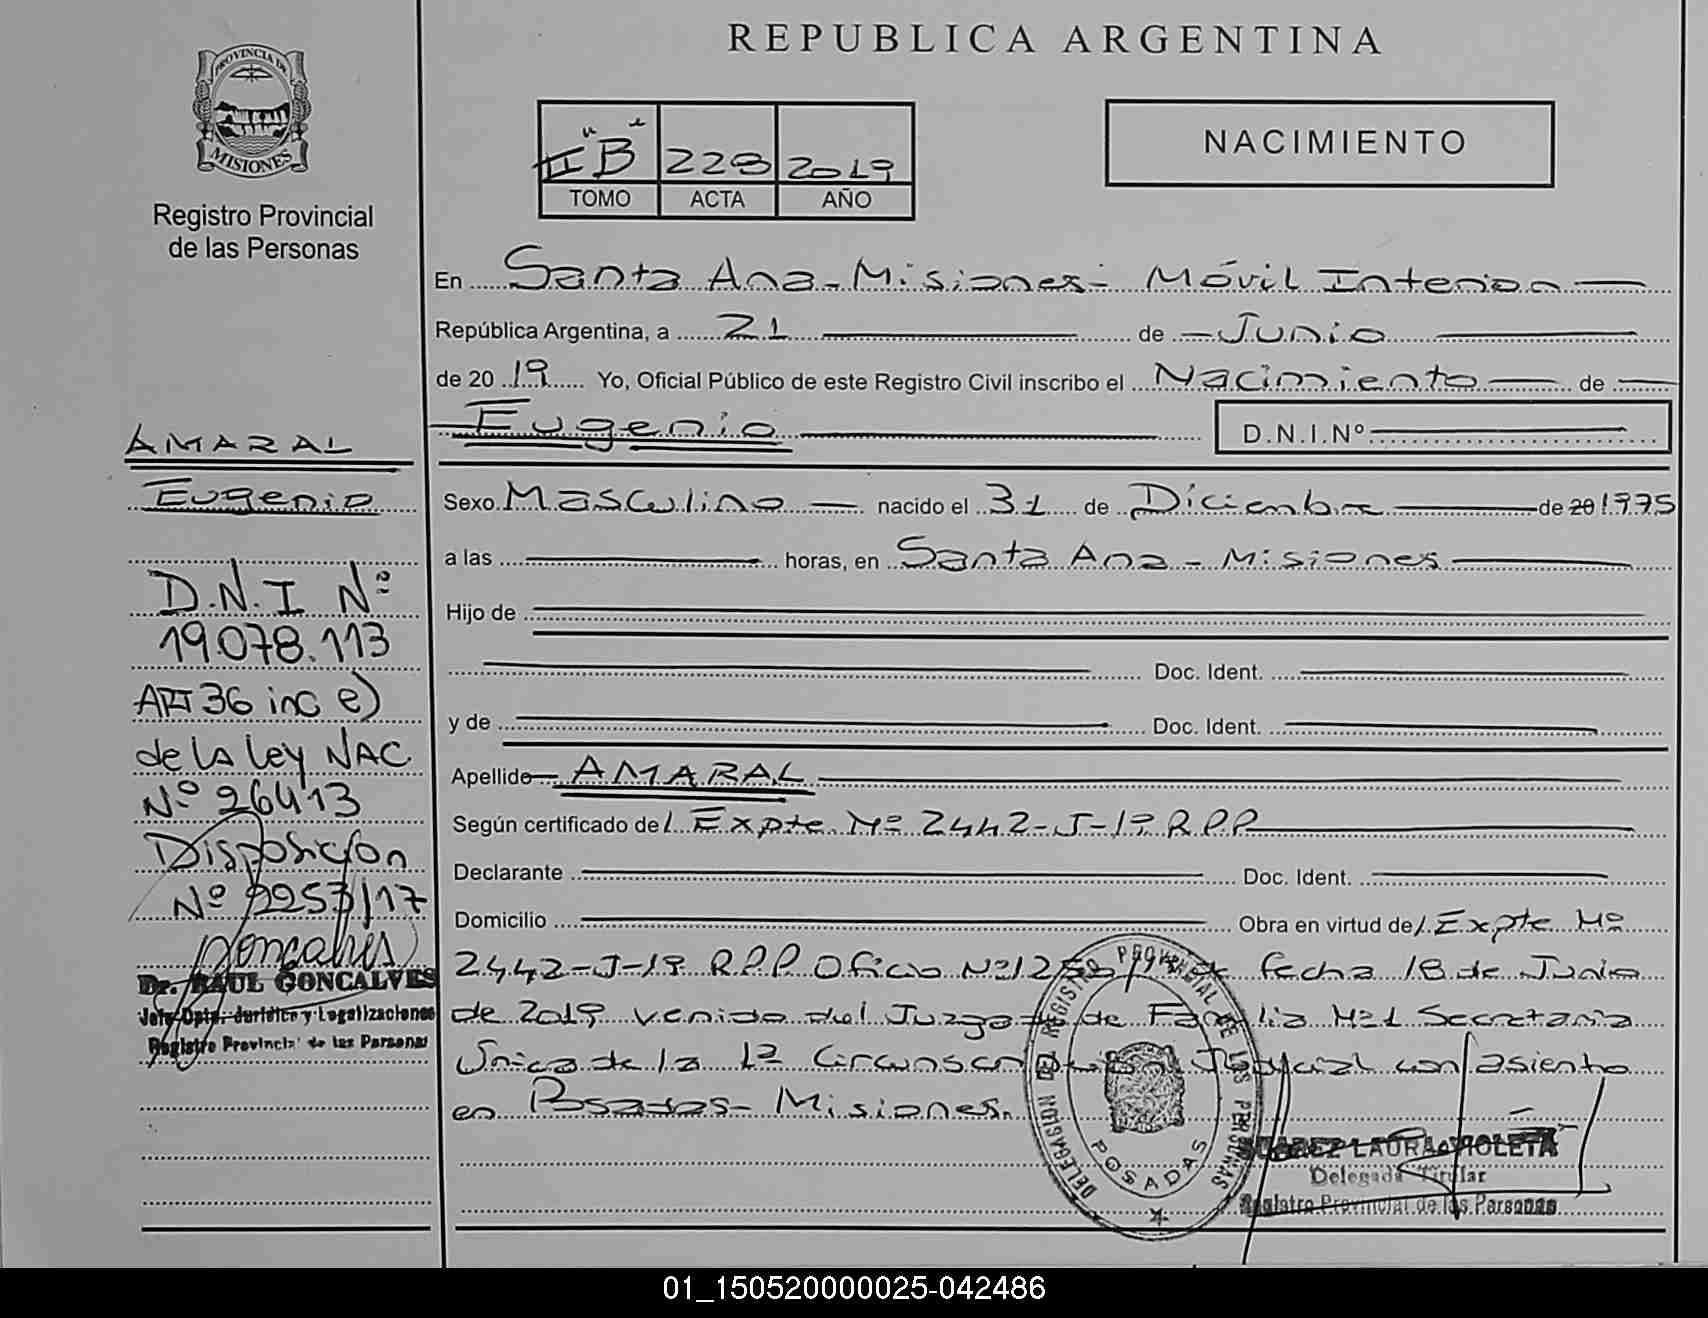 REPUBLICA ARGENTINA
PROVINCIA DE
MISIONES
Registro Provincial
de las Personas
II "B" 228 2019
TOMO ACTA AÑO
NACIMIENTO
En Santa Ana - Misiones - Móvil Interior
República Argentina, a 21 de Junio
de 2019 Yo, Oficial Público de este Registro Civil inscribo el Nacimiento de
Eugenio D.N.I.Nº
Sexo Masculino nacido el 31 de Diciembre de 20 1975
a las horas, en Santa Ana - Misiones
Hijo de
Doc. Ident.
y de Doc. Ident.
Apellido AMARAL
Según certificado de/. Expte Nº 2442-J-19 R.P.P
Declarante Doc. Ident.
Domicilio Obra en virtud de/. Expte Nº
2442-J-19 R.P.P Oficio Nº fecha 18 de Junio
de 2019 venido del Juzgado de Familia Nº1 Secretaria
Unica de la 1ª Circunscripción Judicial con asiento
en Posadas - Misiones.
AMARAL
Eugenio
D.N.I Nº
19.078.113
ART 36 inc e)
de la Ley NAC.
Nº 26413
Disposición
Nº 2253/17
Goncalves
Dr. RAUL GONCALVES
Jefe Dpto. Jurídico y Legalizaciones
Registro Provincial de las Personas
DELEGACION DEL REGISTRO PROVINCIAL DE LAS PERSONAS
POSADAS
SUAREZ LAURA VIOLETA
Delegada Titular
Registro Provincial de las Personas
01_150520000025-042486